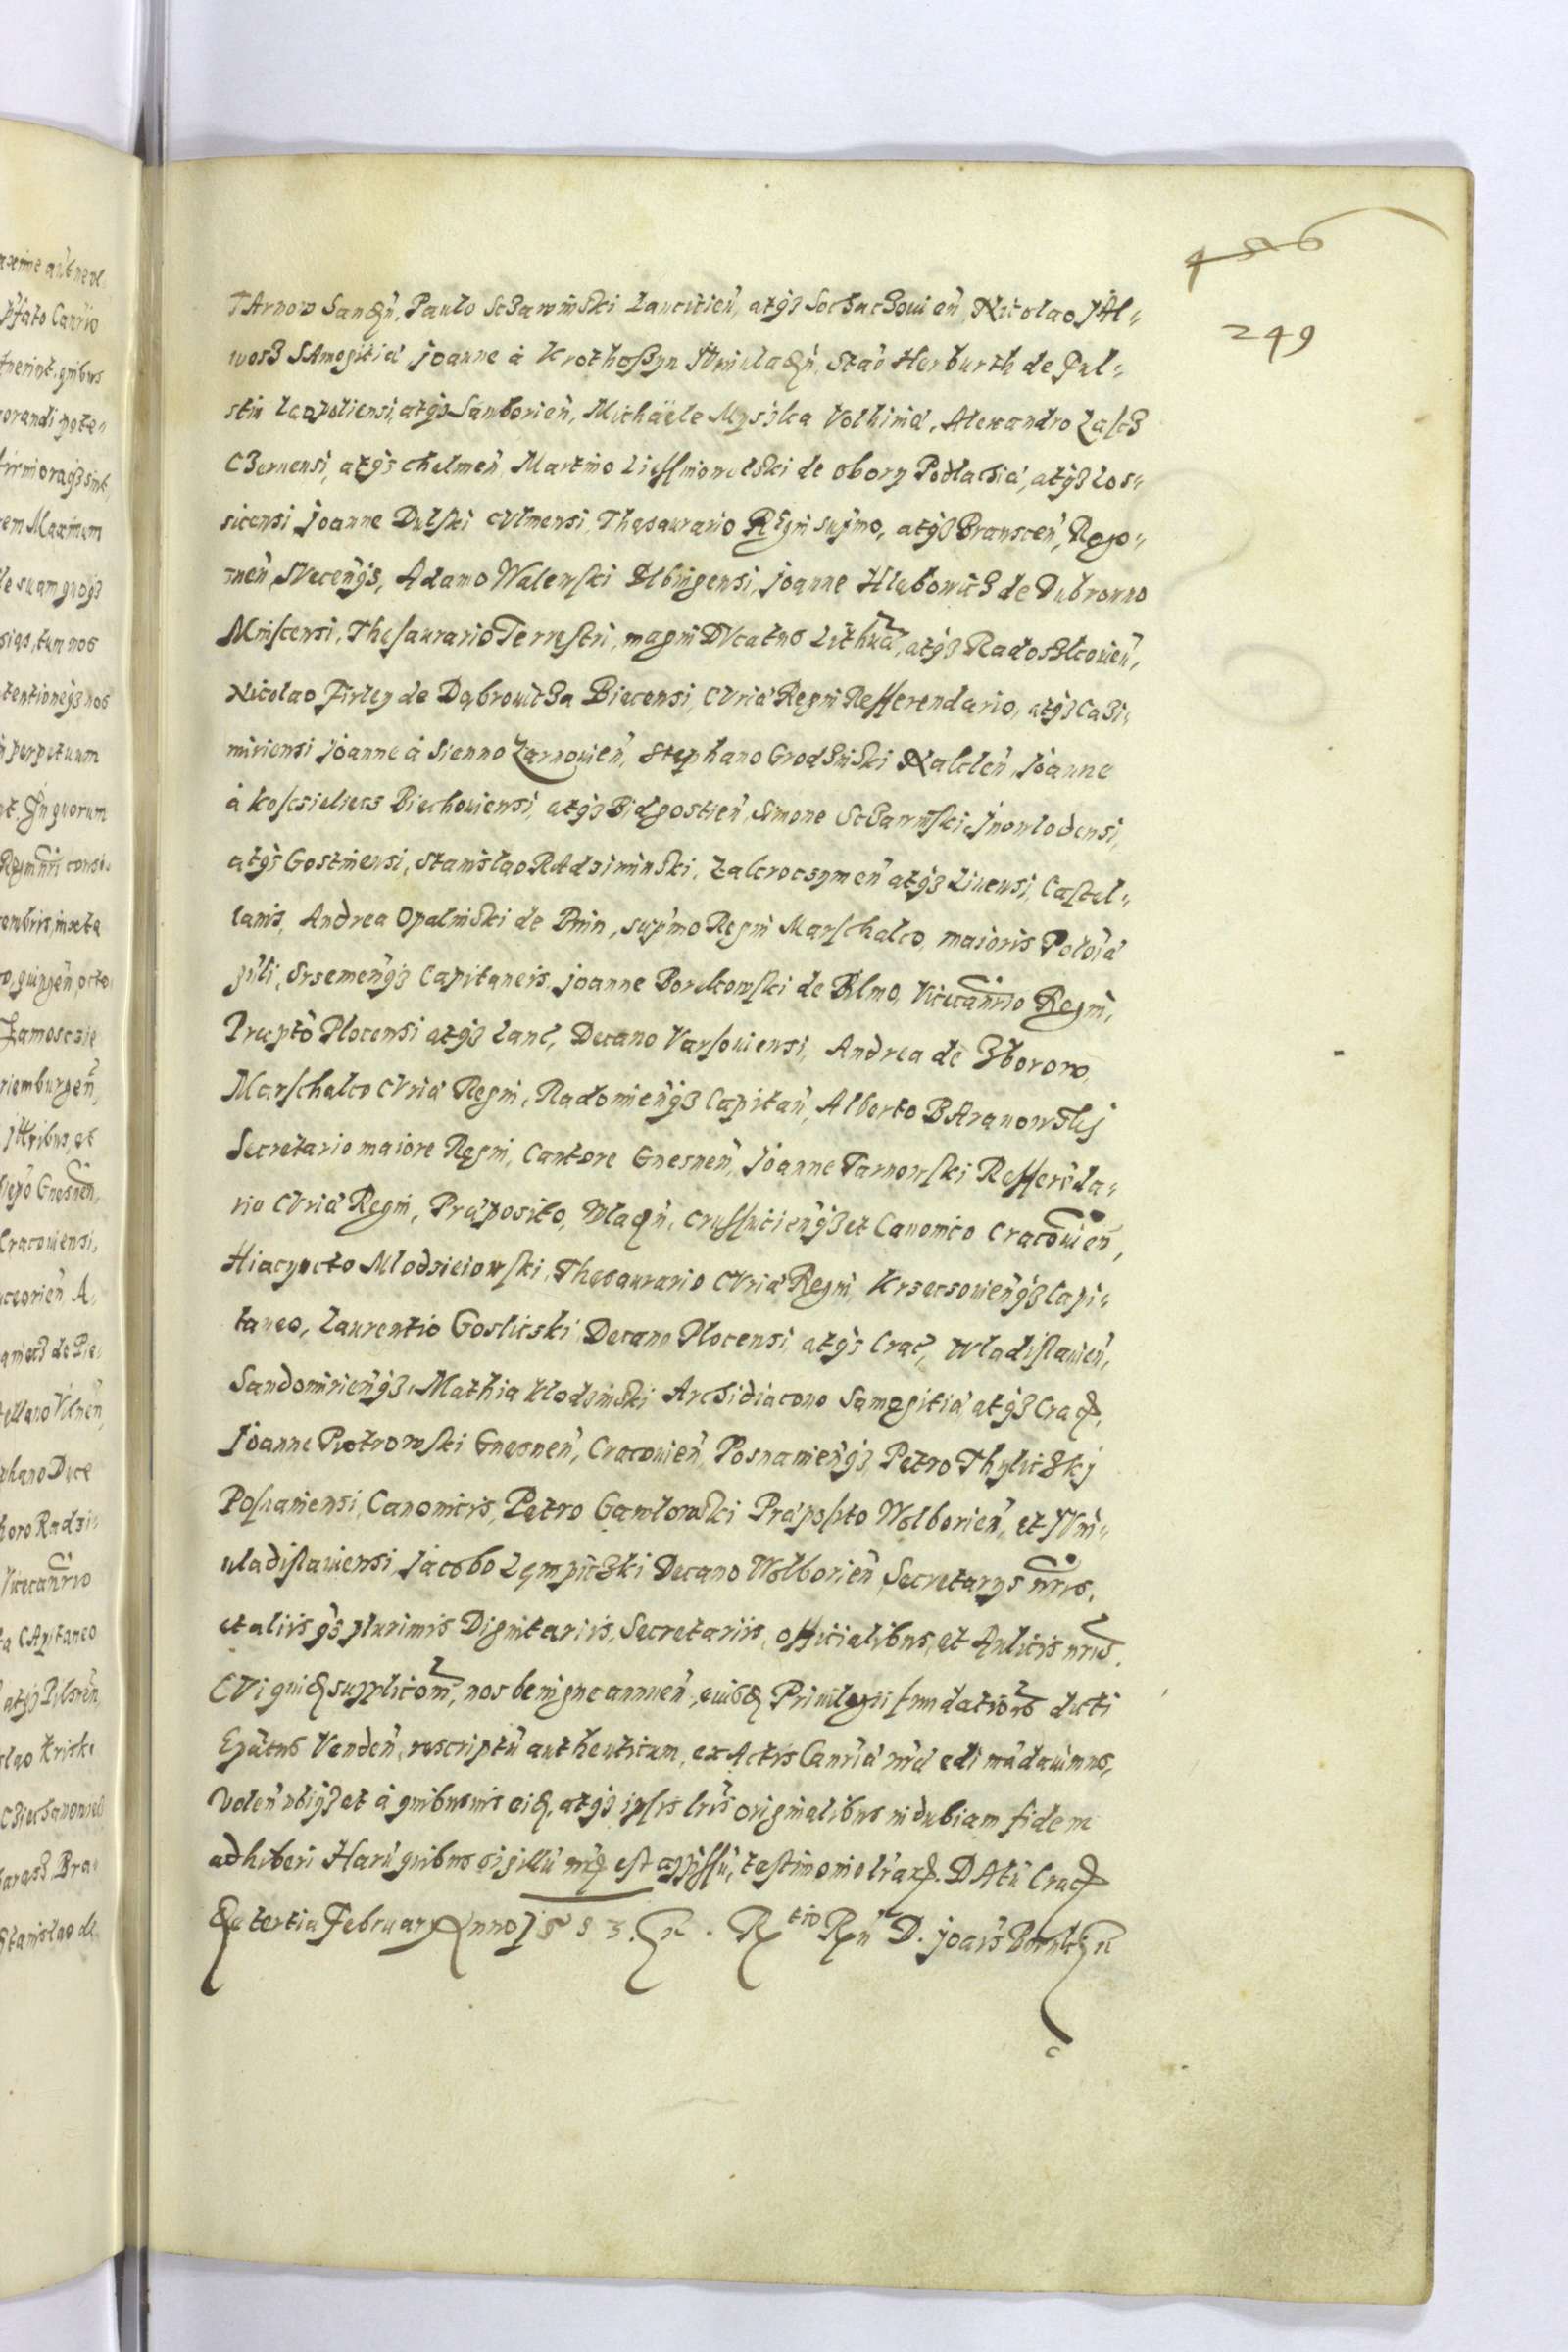 486
249
TArnow Sandn̄, Paulo Sczawinski Lancicien̄, atqz Sochaczowien̄, Nicolao
wosz SAmogitiae Joanne à Krothoszyn Stao Herburth de Ful-
stin Leopoliensi, atqz Samborien̄, Michaële Mysska Volhiniae, Alexandro Lascz
Czernensi, atqz Chelmen̄ Martino de Obory Podlachiae, atqz Los-
sicensi Joanne Dulski CUlmensi, Thesaurario Regni supmo, atqz Branscen̄, Rogo-
znen̄, SVecen̄qz, Adamo Walewski Elbingensi, Joanne Hlebowicz de Dubrowno
Minscensi, Thesaurario Terrestri, magni DVcatus Lithuaē, atqz Radoszkowien̄,
Nicolao Firley de Dąbrowicza Biecensi, CVriae Regni Refferendario, atqz Cazi-
miriensi Joanne à Sienno Zarnowien̄, Stephano Grodzinski Naklen̄, Joanne
à Kosczieliecz Biechowiensi, atqz Bidgostien̄, Simone Sczawinski Jnowlodensi,
atqz Gostinensi, Stanislao RAdziminski, Zakroczymen̄ atqz Livensi, Castel-
lanis, Andrea Opalinski de Bnin, supmo Regni Marschalco, maioris Poloiae
gnli, Srzemen̄qz Capitaneis, Joanne Borukowski de Bilino, Vicecanrio Regni,
Praepto Plocensi atqz Lanc, Decano Varsoviensi, Andrea de Zborow,
Marschalco CVriae Regni, Radomien̄qz Capitan̄, Alberto BAranowskj
Secretario maiore Regni, Cantore Gnesnen̄, Joanne Tarnowski Refferēda-
rio CVriae Regni, Praeposito, Wladn̄, Crussvicien̄qz et Canonico Cracovien̄,
Hiacyncto Mlodzieiowski, Thesaurario CVriae Regni, Krzeczowien̄qz Capi-
taneo, Laurentio Goslicski Decano Plocensi, atqz Crac̄, Wladislavien̄,
Sandomirien̄qz, Mathia Klodzinski Archidiacono Samogitiae atqz Crac,
Joanne Piotrowski Gnesnen̄, Cracovien̄, Posnanien̄qz, Petro Thyliczkj
Posnaniensi, Canonicis, Petro Gawlowski Praeposito Wolborien̄, et JVni-
vladislaviensi, Jacobo Lempiczki Decano Wolborien̄ Secretarys nris,
et aliis qz plurimis Dignitariis, Secretariis, officialibus, et Aulicis nris.
CVi quid supplicom̄, nos benigne annuen̄, euisd Privilegii fundationis dicti
Epātus Venden̄, rescriptū authenticum, ex Actis Canriae nrae edi mādavimus,
Volen̄ ubiqz et à quibusvis eid, atqz ipsis lris originalibus indubiam fidem
adhiberi Harū quibus sigillū nr̄m est appressū, testimonio lrar. DAtū Crac
die tertia February Anno 1583. Rtio Rn D. Joais